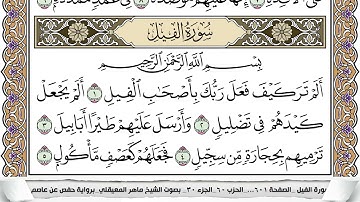 على الأفئدة ٧ إنها عليهم مؤصدة ٨ في عمد ممددة ٩
سُورَةُ الفِيلِ
بِسْمِ اللَّهِ الرَّحْمَٰنِ الرَّحِيمِ
أَلَمْ تَرَ كَيْفَ فَعَلَ رَبُّكَ بِأَصْحَابِ الْفِيلِ ١ أَلَمْ يَجْعَلْ
كَيْدَهُمْ فِي تَضْلِيلٍ ٢ وَأَرْسَلَ عَلَيْهِمْ طَيْرًا أَبَابِيلَ ٣
تَرْمِيهِم بِحِجَارَةٍ مِّن سِجِّيلٍ ٤ فَجَعَلَهُمْ كَعَصْفٍ مَّأْكُولٍ ٥
سورة الفيل .. الصفحة ٦٠١ ... الحزب ٦٠ .. الجزء ٣٠ .. بصوت الشيخ ماهر المعيقلي برواية حفص عن عاصم